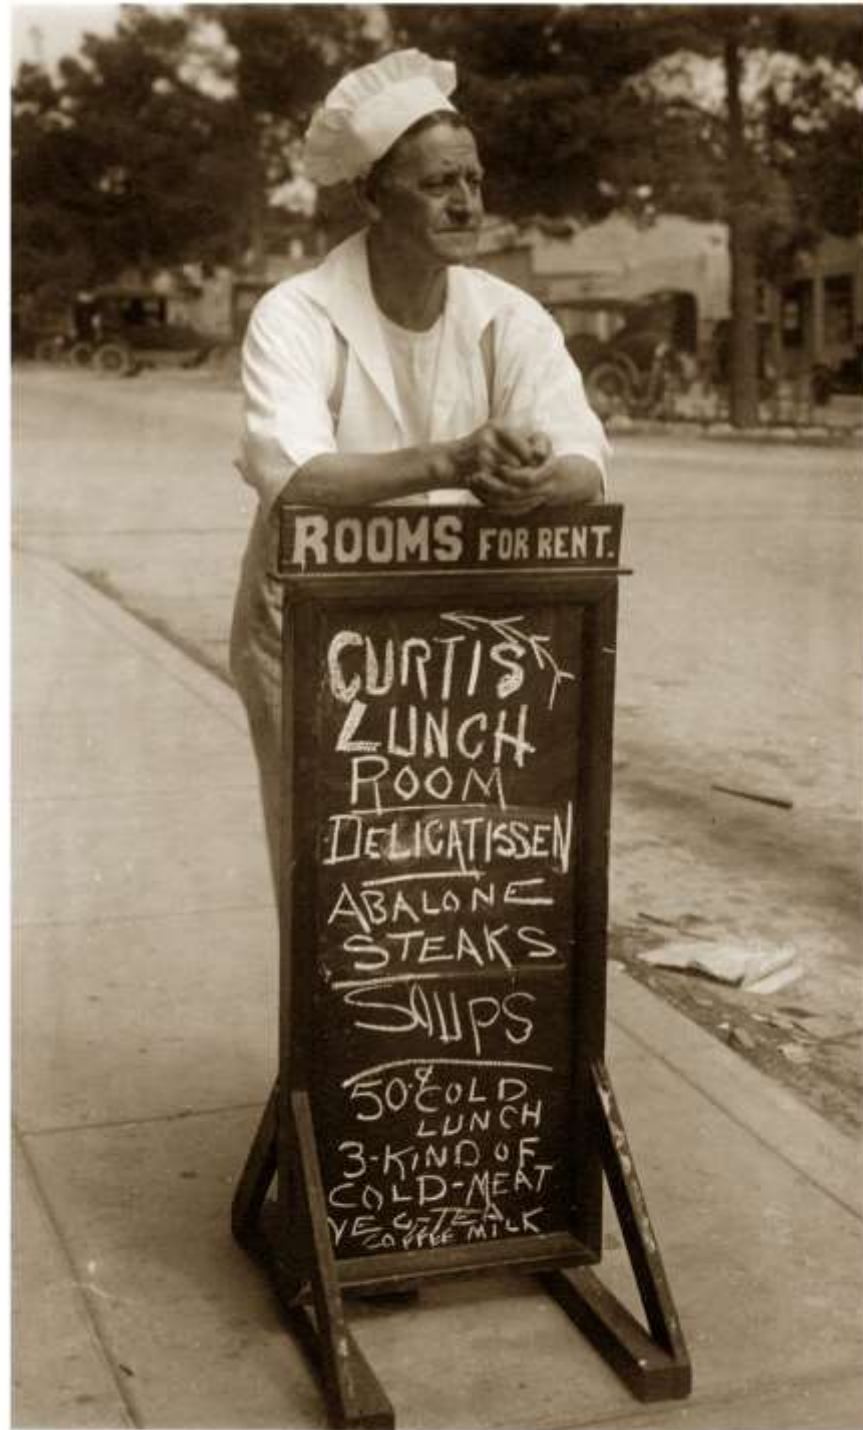 ROOMS FOR RENT.
CURTIS
LUNCH
ROOM
DELICATISSEN
ABALONE
STEAKS
SOUPS
50¢ COLD
LUNCH
3-KIND OF
COLD-MEAT
VEG-TEA
COFFEE MILK